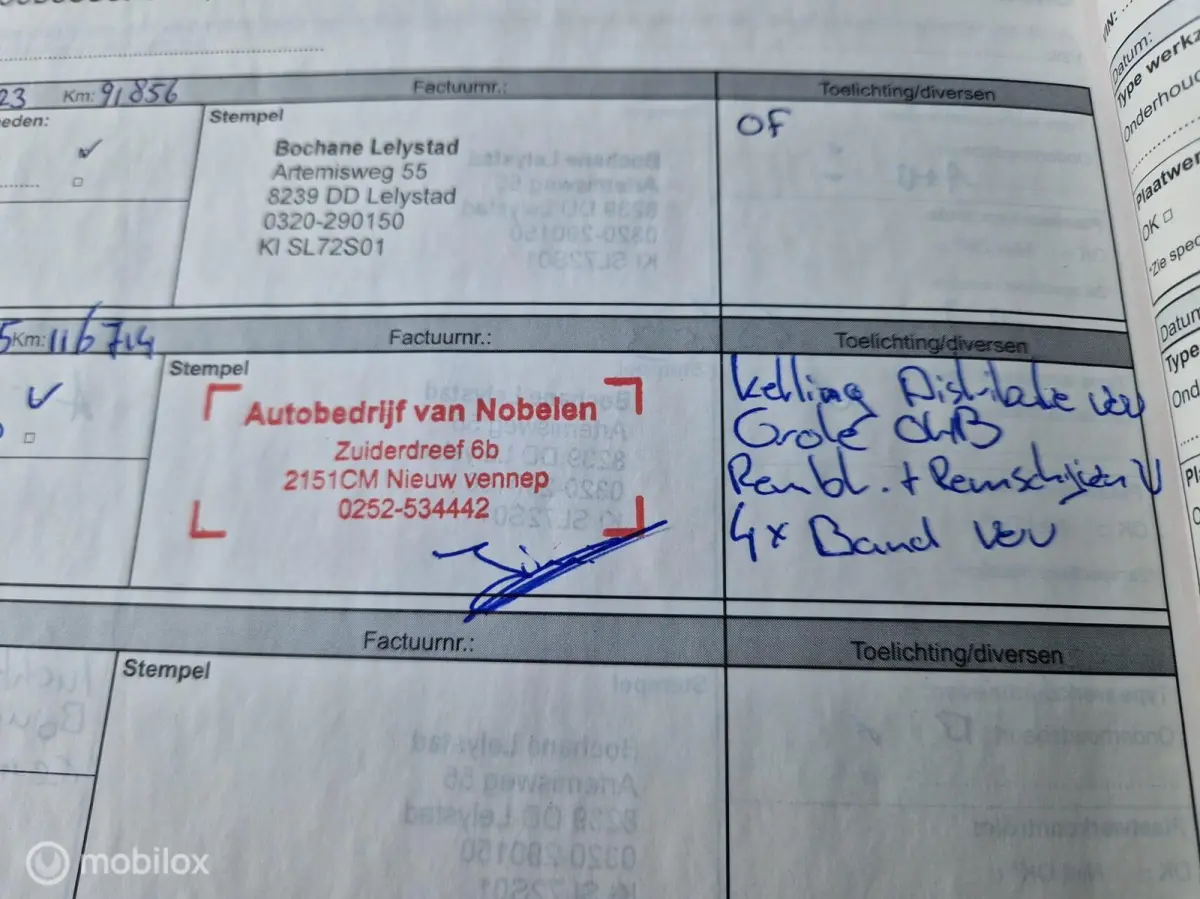 23 Km: 91856 Factuurnr.: Toelichting/diversen
eden:
Stempel
OF
Bochane Lelystad
Artemisweg 55
8239 DD Lelystad
0320-290150
KI SL72S01
5 Km: 116714 Factuurnr.: Toelichting/diversen
Stempel
Autobedrijf van Nobelen
Zuiderdreef 6b
2151CM Nieuw vennep
0252-534442
Ketting Distributie vev
Grote OHB
Rembl. + Remschijven V
4x Band vev
Factuurnr.: Toelichting/diversen
Stempel
VIN:
Datum:
Type werkz
Onderhoud
Plaatwer
OK
*Zie spec
Datum
Type
Ond
Pl
mobilox